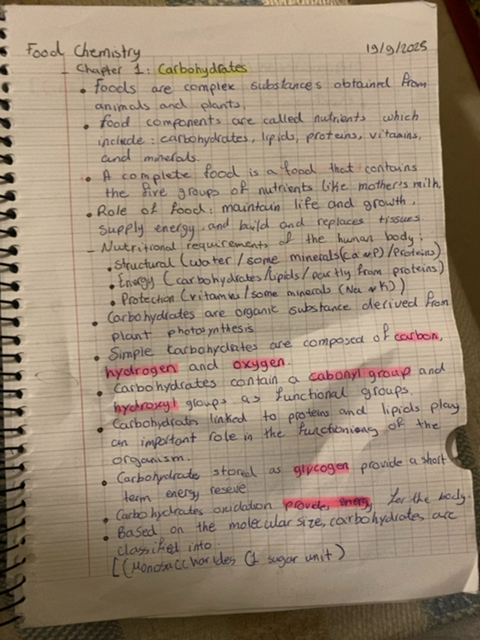 Food Chemistry 19/9/2025
- Chapter 1: Carbohydrates
• Foods are complex substances obtained from
animals and plants,
• Food components are called nutrients which
include: carbohydrates, lipids, proteins, vitamins,
and minerals.
• A complete food is a food that contains
the five groups of nutrients like mother's milk.
• Role of food: maintain life and growth,
supply energy, and build and replaces tissues
- Nutritional requirements of the human body:
• Structural (water/some minerals(Ca & P)/Proteins)
• Energy (carbohydrates/lipids/partly from proteins)
• Protection (vitamins/some minerals (Na & K))
• Carbohydrates are organic substance derived from
plant photosynthesis
• Simple carbohydrates are composed of carbon,
hydrogen and oxygen.
• Carbohydrates contain a cabonyl group and
hydroxyl groups as functional groups.
• Carbohydrates linked to proteins and lipids play
an important role in the functioning of the
organism.
• Carbohydrate stored as glycogen provide a short
term energy reseve
• Carbohydrates oxidation provides energy for the body
• Based on the molecular size, carbohydrates are
classified into:
[(Monosaccharides (1 sugar unit)